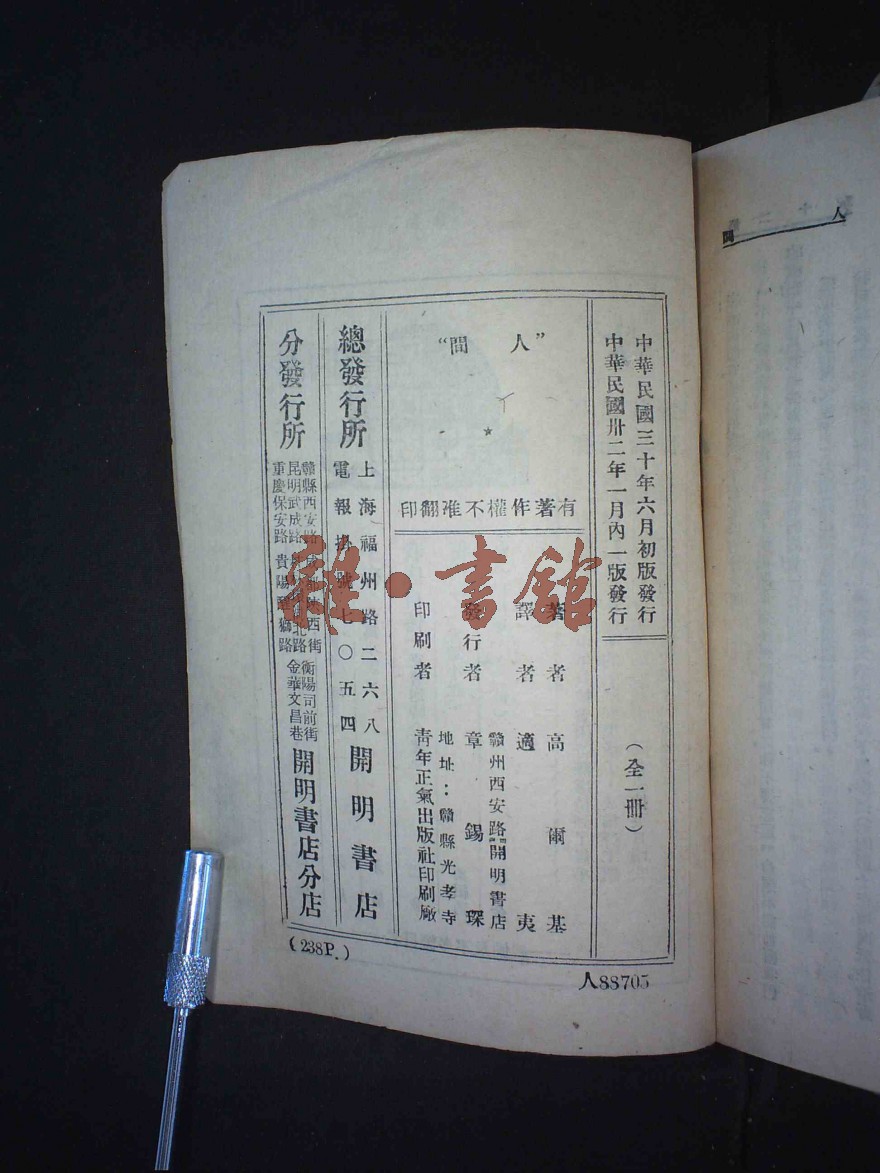 中華民國三十年六月初版發行
中華民國卅二年一月內一版發行
(全一冊)
“人間”
有著作權不准翻印
著者 高爾基
譯者 適夷
發行者 章錫琛
贛州西安路開明書店
印刷者 青年正氣出版社印刷廠
地址：贛縣光孝寺
總發行所
上海福州路二六八
電報掛號七〇五四
開明書店
分發行所
贛縣西安路 成都陝西街 衡陽司前街
昆明武成路 北路 金華文昌巷
重慶保安路 貴陽醒獅路
開明書店分店
(238P.)
人88705
人間
雜·書館